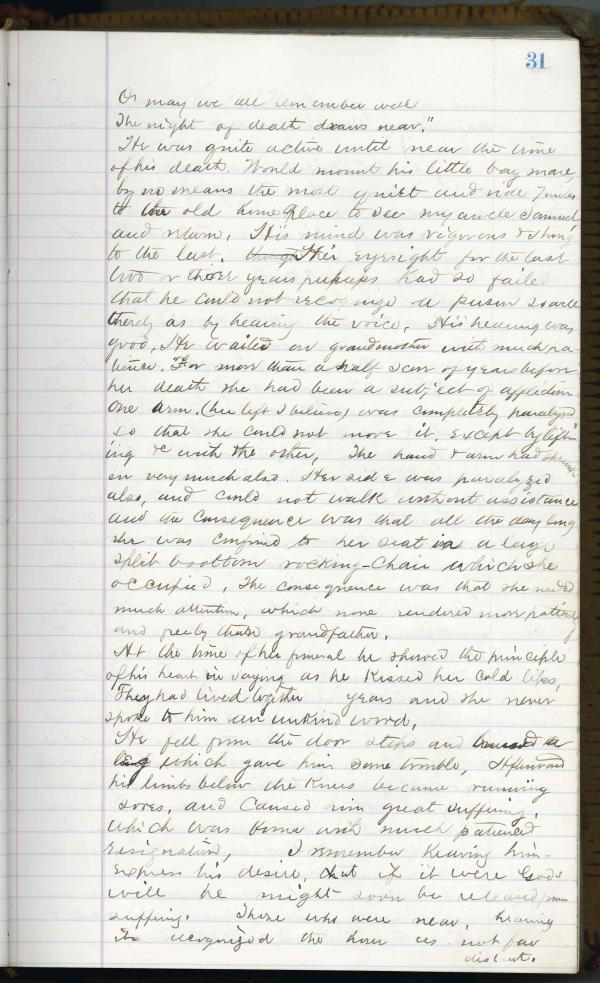 31
Or may we all remember well
The night of death draws near."
He was quite active until near the time
of his death. Would mount his little bay mare
by no means the most quiet and ride 7 miles
to the old home place to see my uncle Samuel
and return. His mind was vigorous & strong
to the last. though His eyesight for the last
two or three years perhaps had so failed
that he could not recognize a person so well
as by hearing the voice. His hearing was
good. He waited on grandmother with much pa-
tience. For more than a half scor of years before
her death she had been a subject of affliction
one arm. (her left I believe) was completely paralyzed
so that she could not move it, except by lift-
ing &c with the other, The hand & arm had shrunk
en very much also. Her side was paralyzed
also, and could not walk without assistance
and the consequence was that all the day long
she was confined to her seat in a large
split bottom rocking-chair which she
occupied. The consequence was that she needed
much attention, which none rendered more patiently
and freely than grandfather.
At the time of her funeral he showed the principle
of his heart in saying as he kissed her cold lips,
They had lived together years and she never
spoke to him an unkind word.
He fell from the door steps and bruised a
leg which gave him some trouble, Afterward
his limbs below the knees became running
sores, and caused him great suffering,
which was borne with much patience &
resignation, I remember hearing him
express his desire, that if it were Gods
will he might soon be released from
suffering. Those who were near, hearing
recognized the hour as not far
distant.